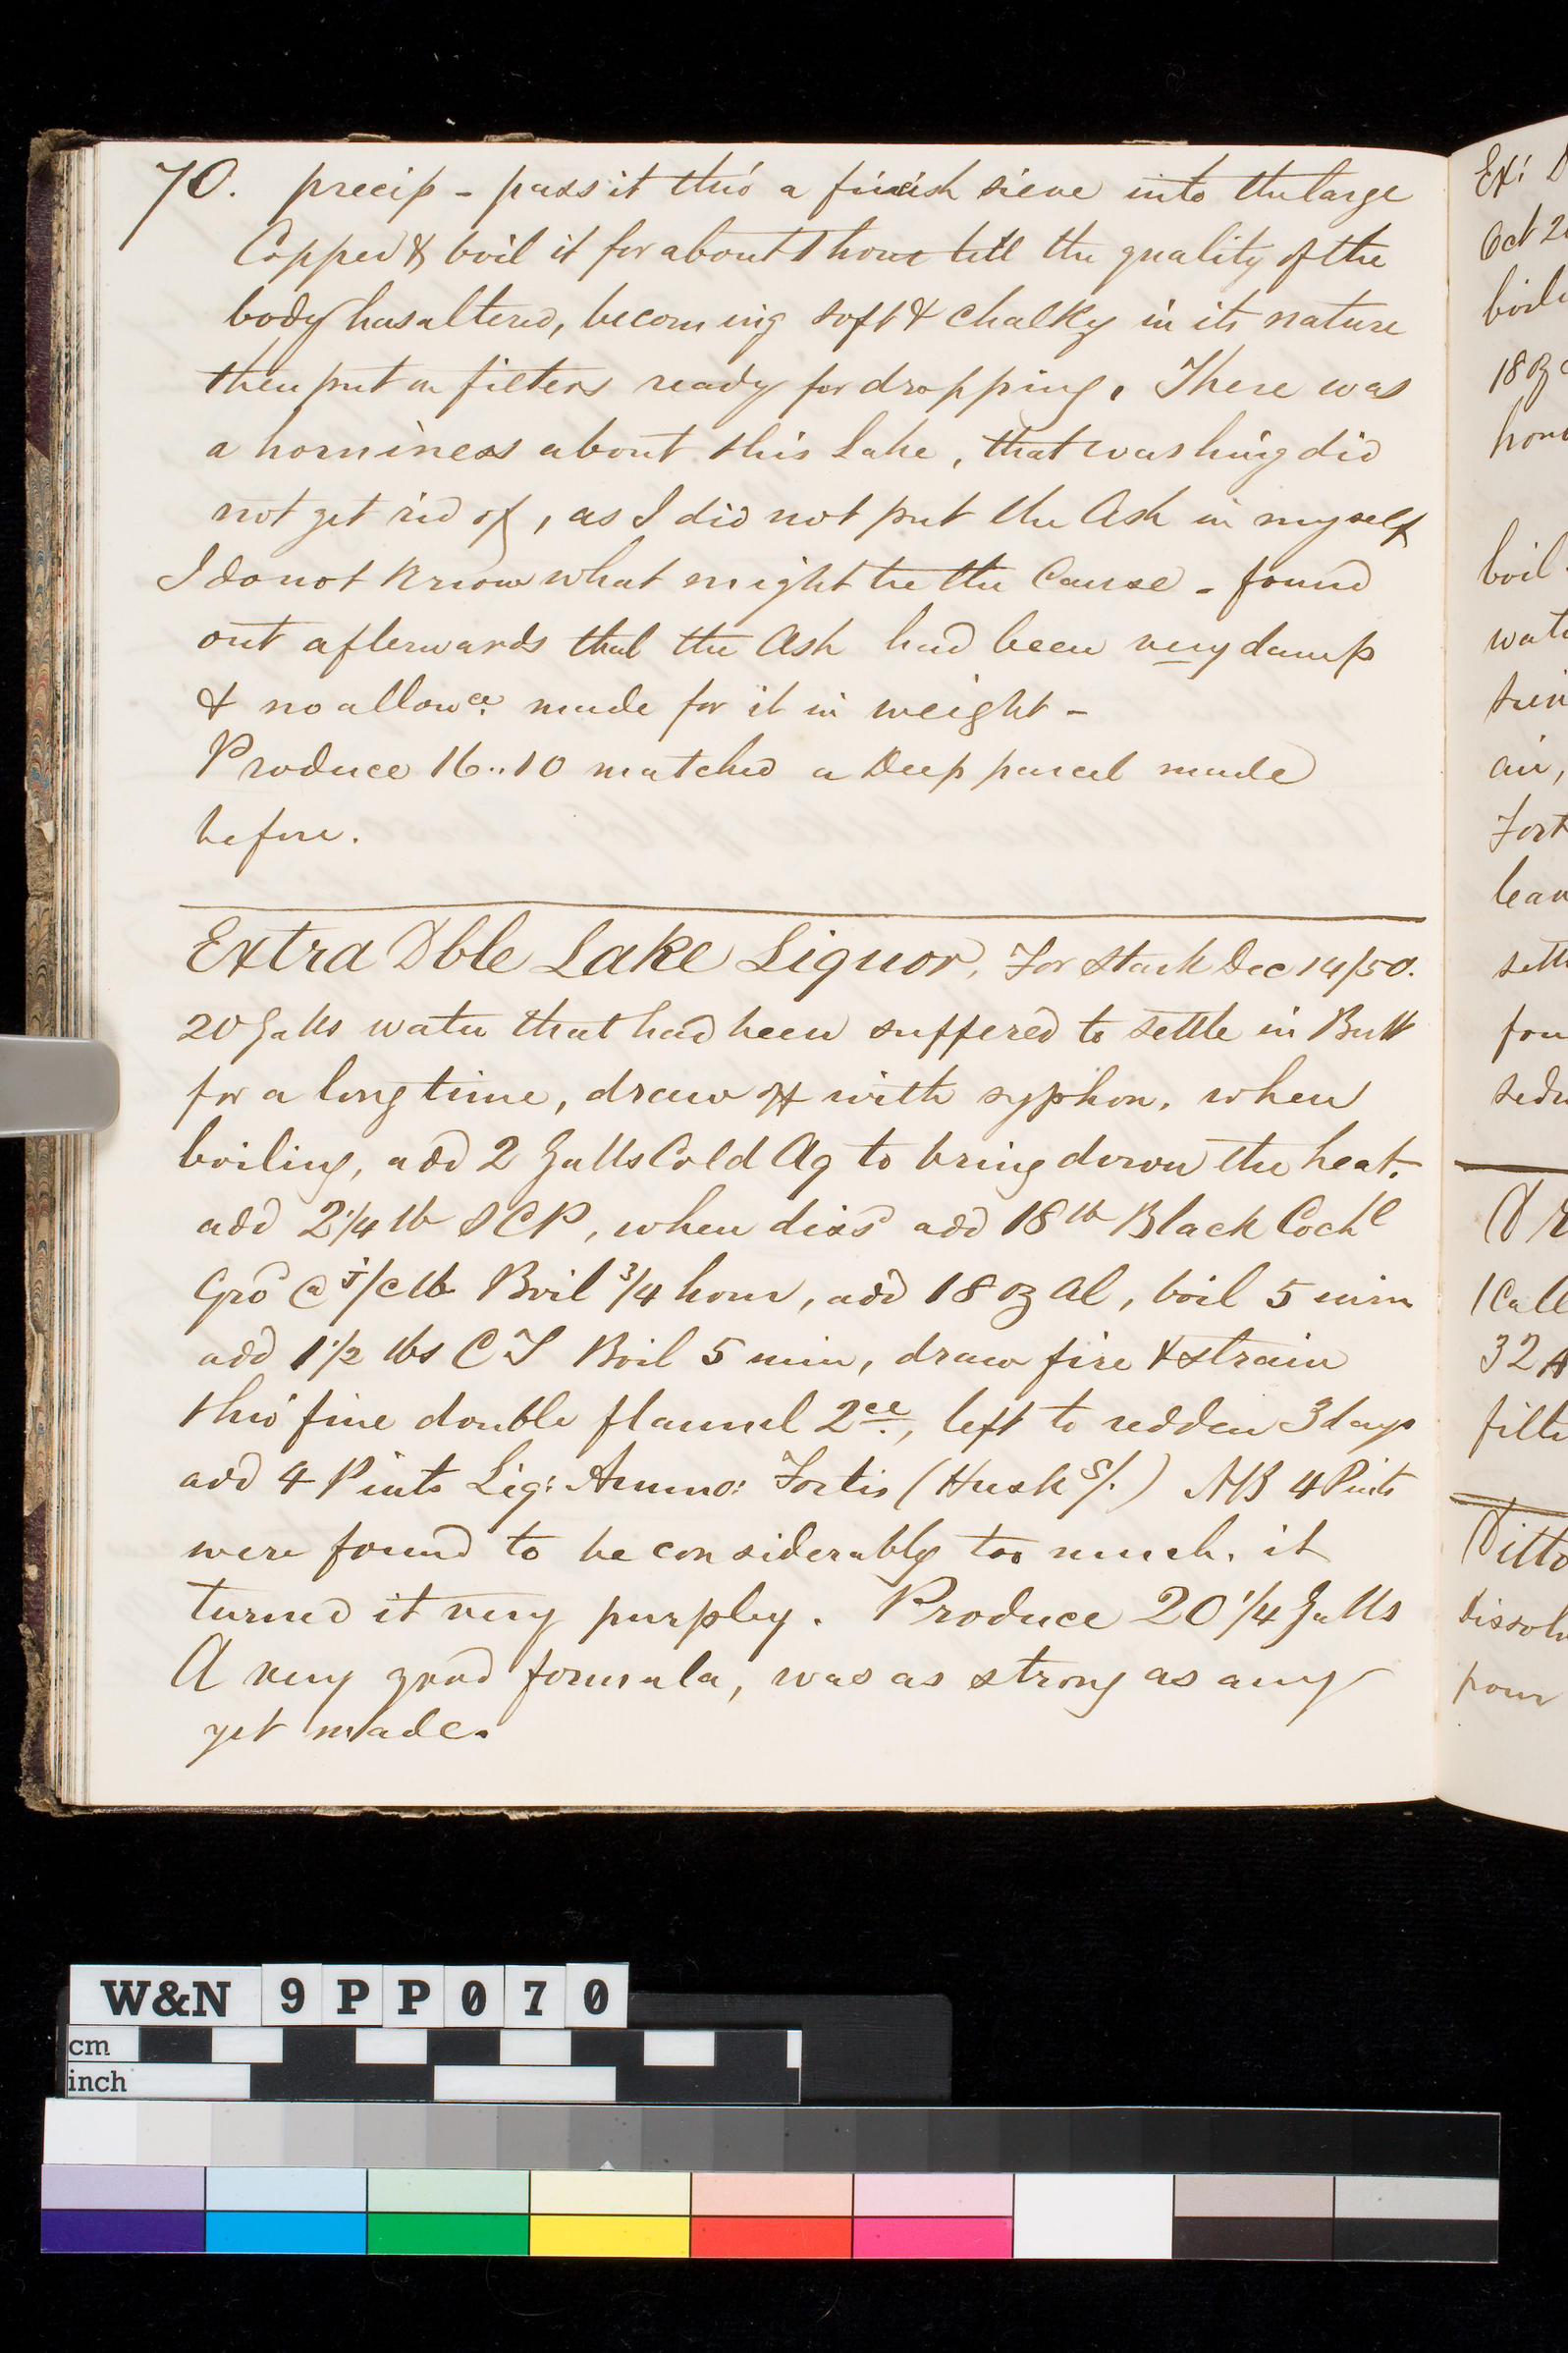 70. precip - pass it thro' a finish sieve into the large
Copper & boil it for about 1 hour till the quality of the
body has altered, becoming soft & chalky in its nature
then put on filters ready for dropping. There was
a horniness about this Lake, that washing did
not get rid of, as I did not put the Ash in myself
I do not know what might be the Cause - found
out afterwards that the Ash had been very damp
& no allowce. made for it in weight -
Produce 16..10 matched a Deep parcel made
before.
Extra Dble Lake Liquor, For Stock Dec 14/50.
20 Galls water that had been suffered to settle in Butt
for a long time, draw off with syphon, when
boiling, add 2 Galls Cold Aq to bring down the heat.
add 2 1/4 lb SCP, when dissd add 18 lb Black Cochl
Grd @ 5/c lb Boil 3/4 hour, add 18 oz Al, boil 5 min
add 1 1/2 lbs CT Boil 5 min, draw fire & strain
thro' fine double flannel 2ce., left to redden 3 days
add 4 Pints Liq: Ammo: Fortis (Husk S/.) NB 4 Pints
were found to be considerably too much. it
turned it very purpley. Produce 20 1/4 Galls
A very good formula, was as strong as any
yet made.
Ex: D
Oct 2
boil
18 oz
hour
boil
wat
siev
air,
Fort
leav
sett
fou
sed
1 Gall
32
filt
Ditto
dissol
pour
W&N 9PP070
cm
inch